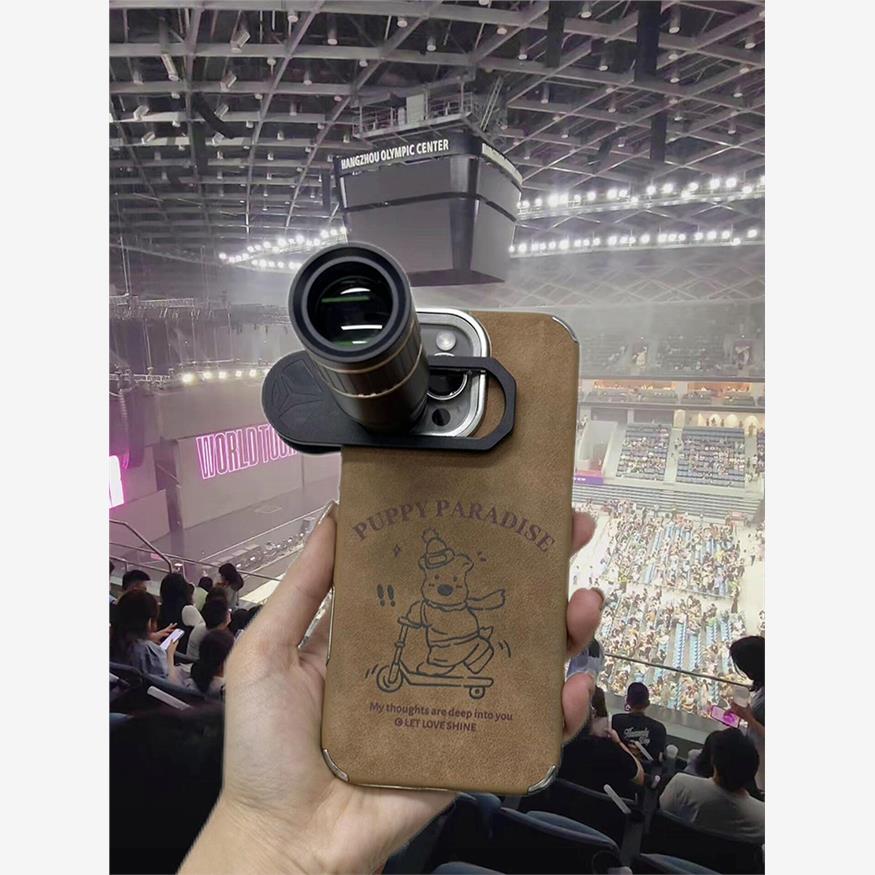 HANGZHOU OLYMPIC CENTER
WORLD TOUR
PUPPY PARADISE
My thoughts are deep into you
LET LOVE SHINE